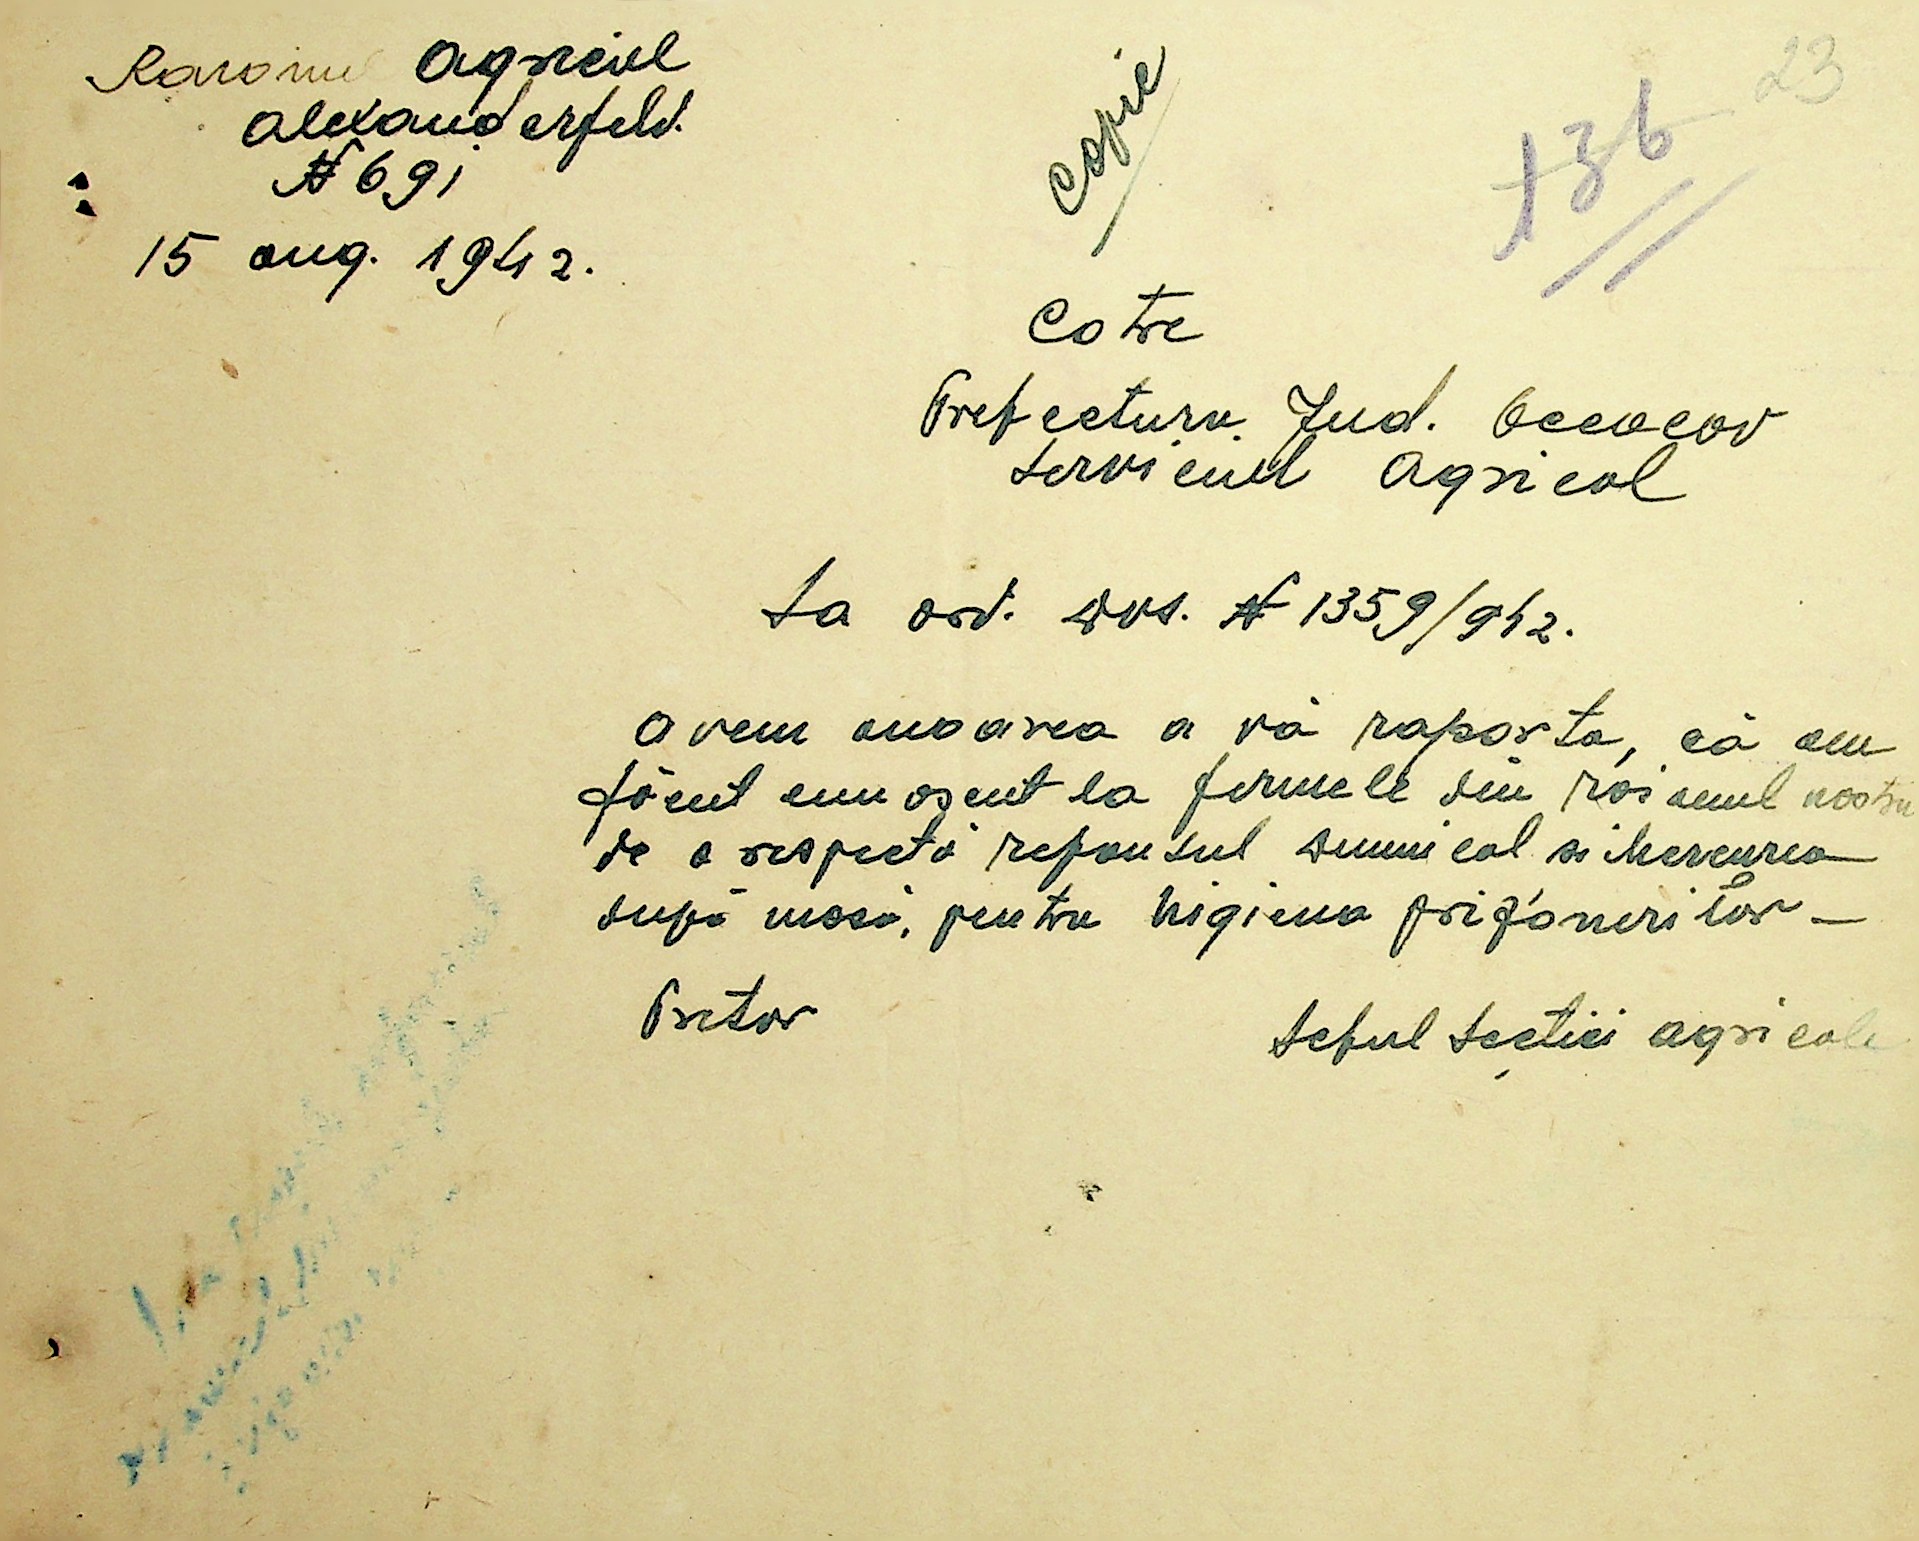 Raionul Agricol
Alexanderfeld.
N 691
15 aug. 1942.
Copie
136
23
Cotre
Prefectura Jud. Oceacov
Serviciul Agricol
La ord. dvs. N 1359/942.
Avem onoarea a vă raporta, că am
făcut cunoscut la fermele din raionul nostru
de a respectă repausul duminical si Mercurea
după masă, pentru higiena prizonerilor –
Pretor
Seful Secției agricole